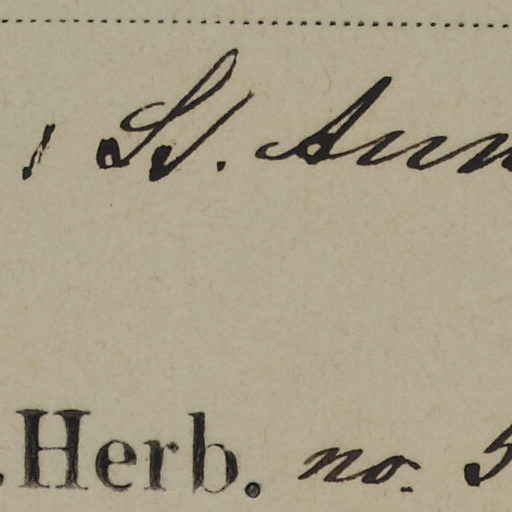 , St. Ann
. Herb. no. 5